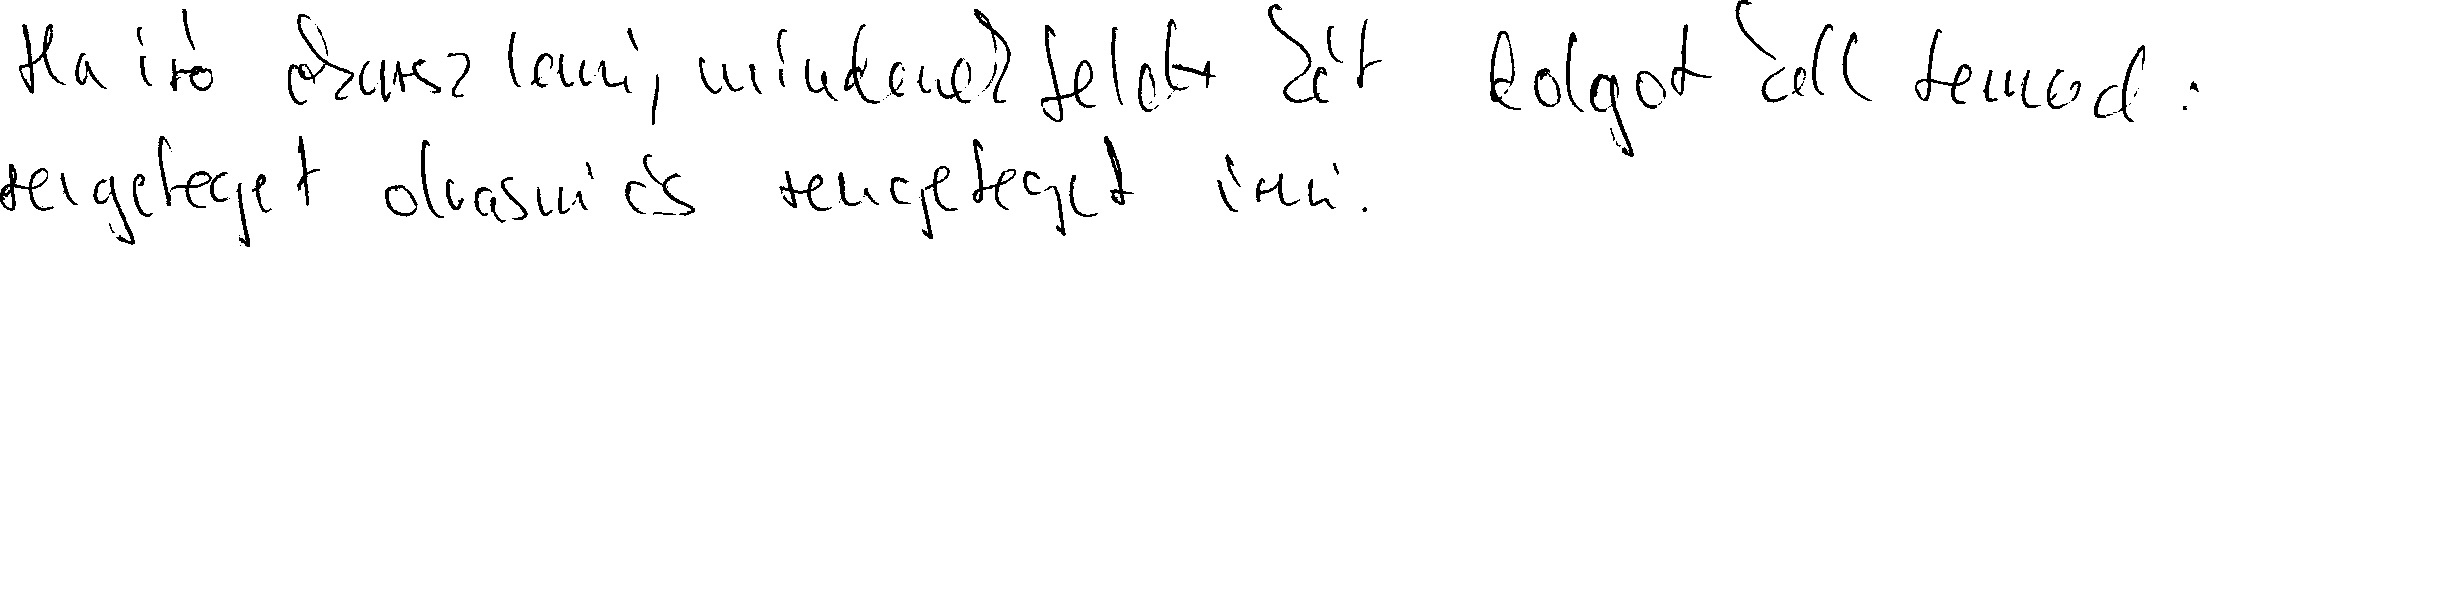 Ha író akarsz lenni, mindenek felett két dolgot kell tenned:
rengeteget olvasni és rengeteget írni.